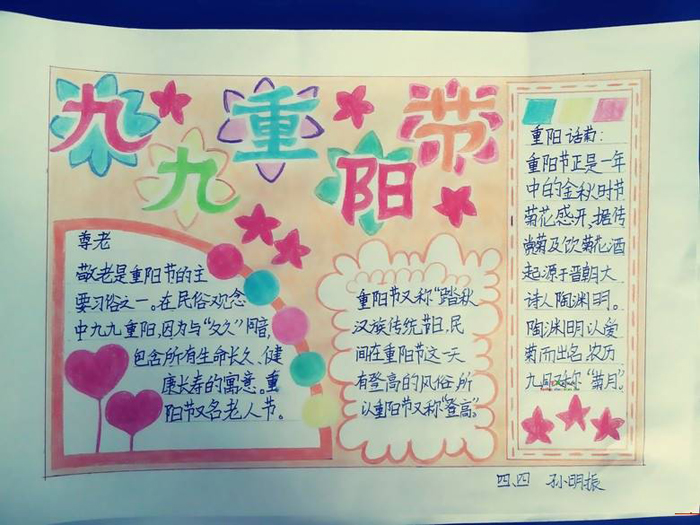 九九重阳节
尊老
敬老是重阳节的主
要习俗之一。在民俗观念
中九九重阳,因为与“久久”同音,
包含所有生命长久、健
康长寿的寓意。重
阳节又名老人节。
重阳节又称“踏秋
汉族传统节日,民
间在重阳节这一天
有登高的风俗,所
以重阳节又称“登高”。
重阳话菊:
重阳节正是一年
中的金秋时节
菊花盛开,据传
赏菊及饮菊花酒
起源于晋朝大
诗人陶渊明。
陶渊明以爱
菊而出名,农历
九月又称“菊月”。
四、四 孙明振